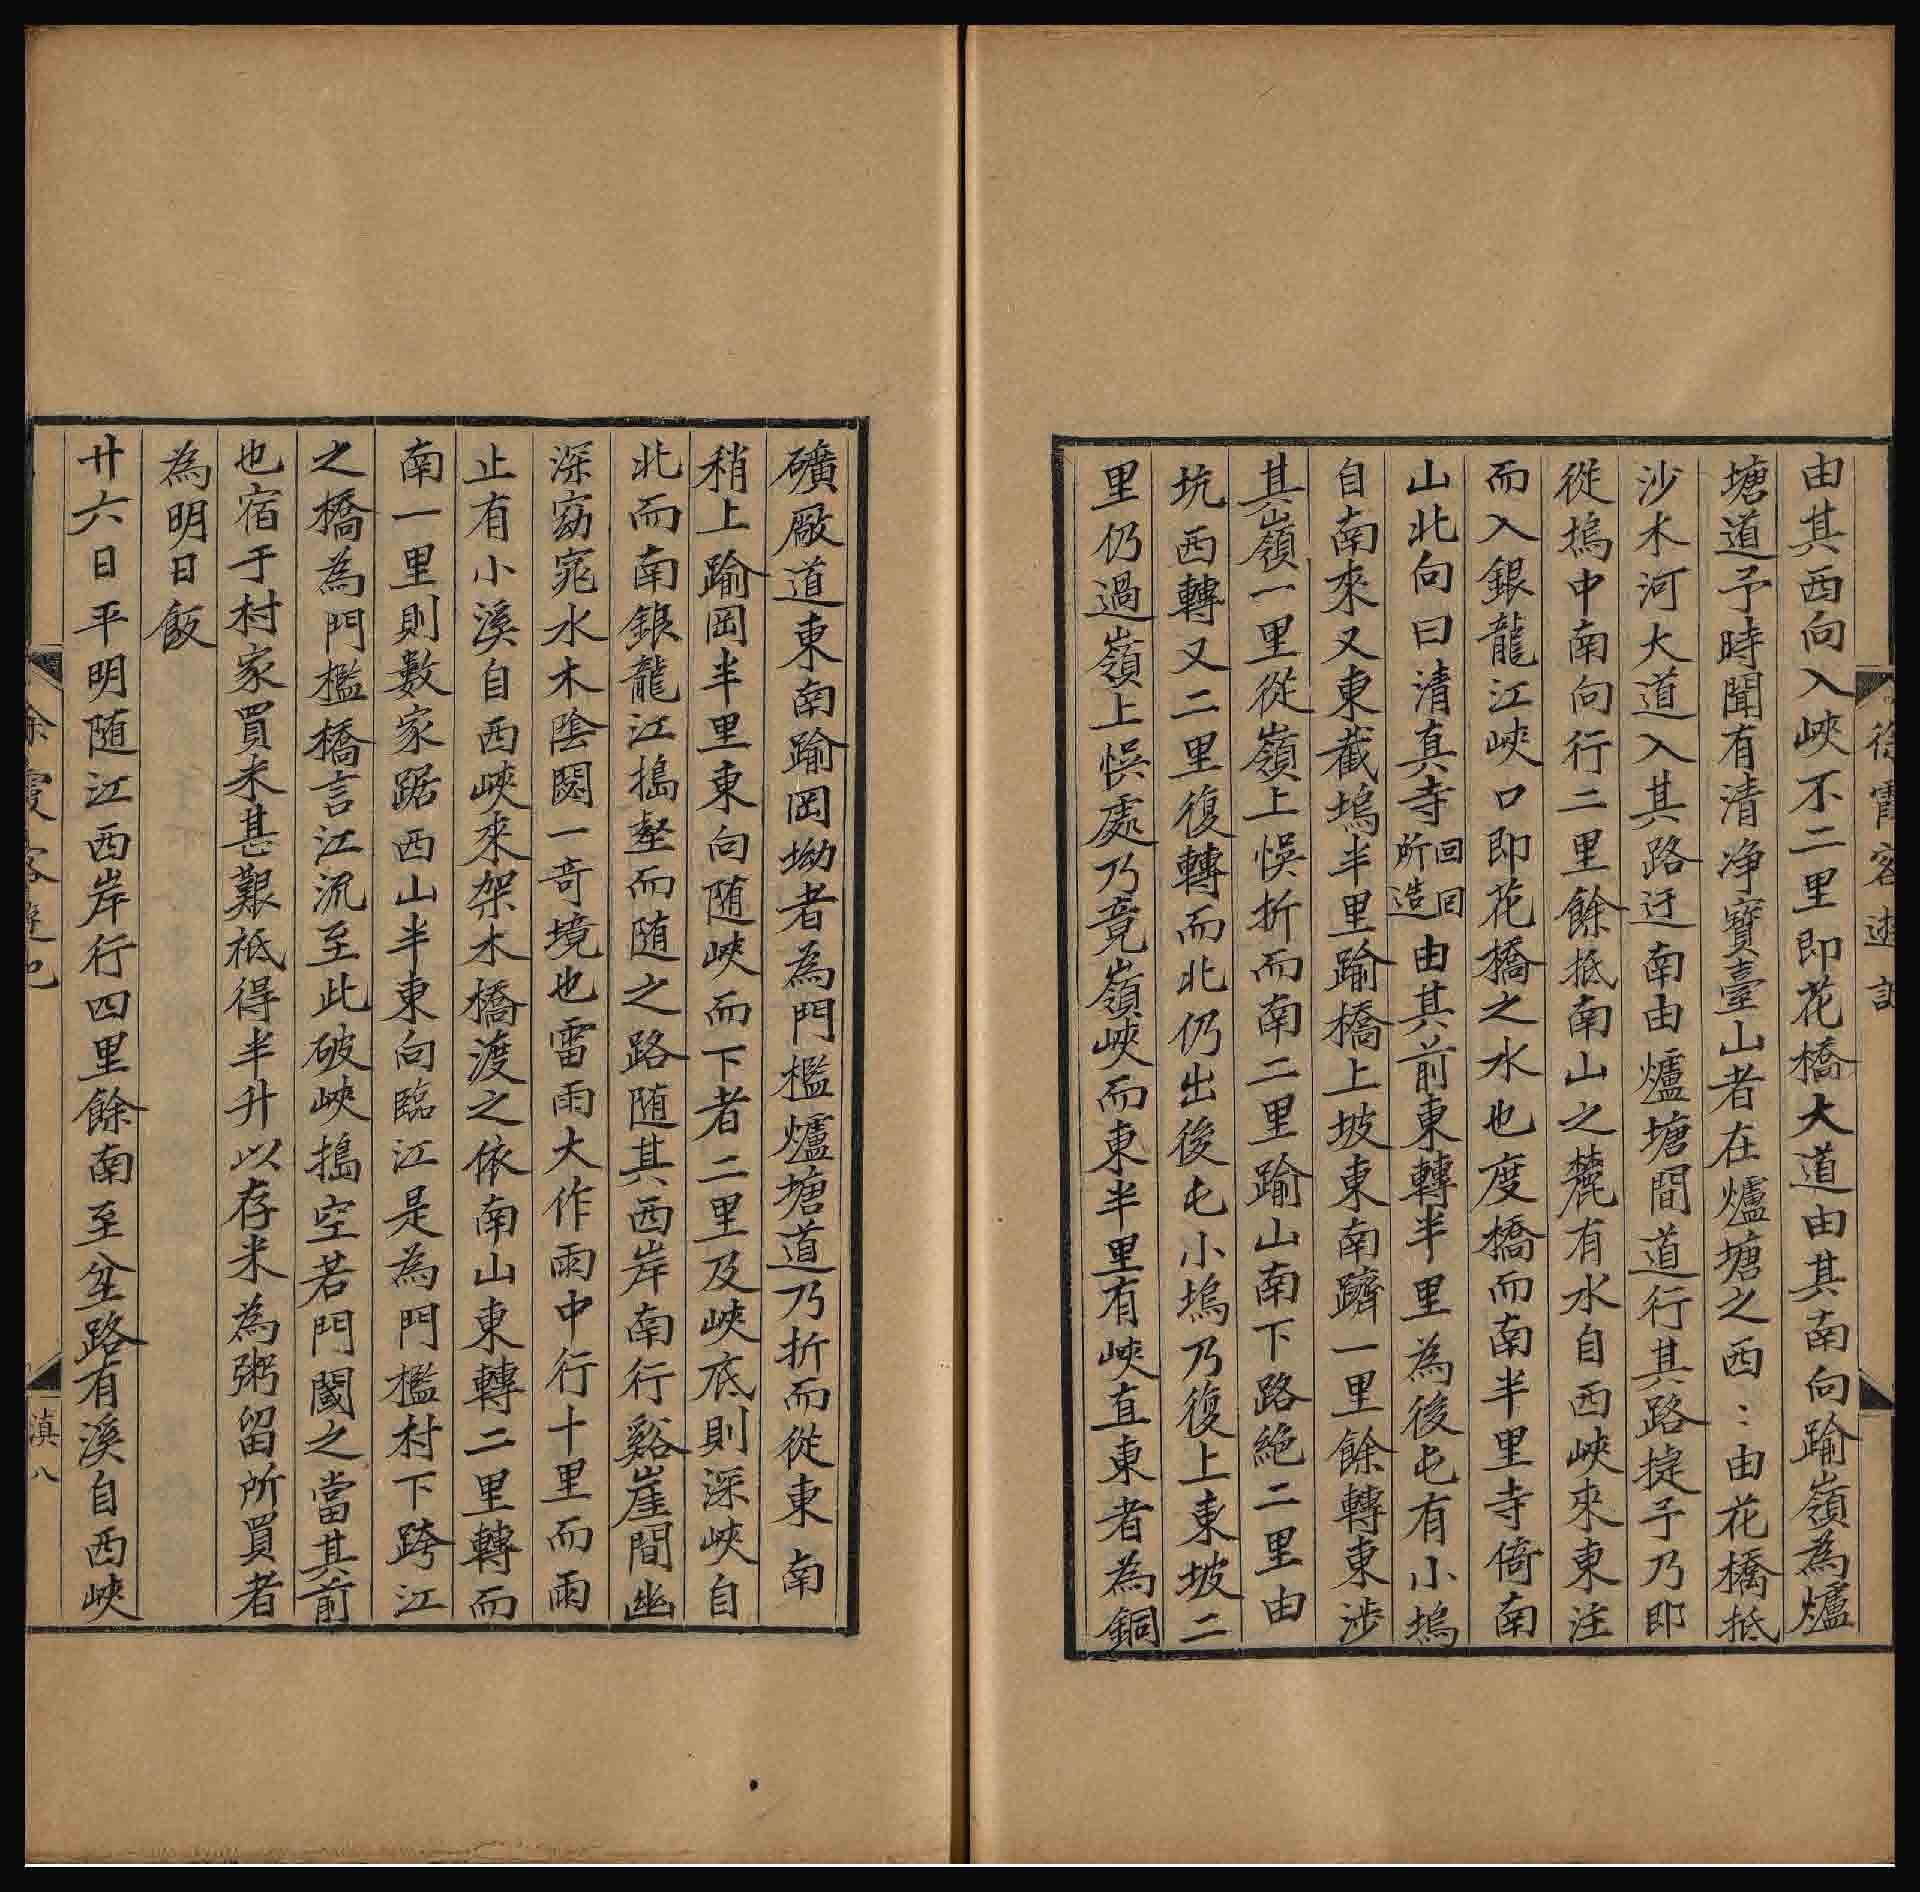 徐霞客遊記
由其西向入峽不二里即花橋大道由其南向踰嶺為爐
塘道予時聞有清净寶臺山者在爐塘之西〻由花橋抵
沙木河大道入其路迂南由爐塘間道行其路捷予乃即
從塢中南向行二里餘抵南山之麓有水自西峽來東注
而入銀龍江峽口即花橋之水也度橋而南半里寺倚南
山北向曰清真寺回回所造由其前東轉半里為後屯有小塢
自南來又東截塢半里踰橋上坡東南躋一里餘轉東涉
其嶺一里從嶺上悞折而南二里踰山南下路絶二里由
坑西轉又二里復轉而北仍出後屯小塢乃復上東坡二
里仍過嶺上悞處乃竟嶺峽而東半里有峽直東者為銅
礦廠道東南踰岡坳者為門檻爐塘道乃折而從東南
稍上踰岡半里東向随峽而下者二里及峽底則深峽自
北而南銀龍江搗壑而随之路随其西岸南行谿崖間幽
深窈窕水木陰閟一竒境也雷雨大作雨中行十里而雨
止有小溪自西峽來架木橋渡之依南山東轉二里轉而
南一里則數家踞西山半東向臨江是為門檻村下跨江
之橋為門檻橋言江流至此破峽搗空若門閾之當其前
也宿于村家買米甚艱祗得半升以存米為粥留所買者
為明日飯
廿六日平明随江西岸行四里餘南至坌路有溪自西峽
徐霞客遊記
滇八